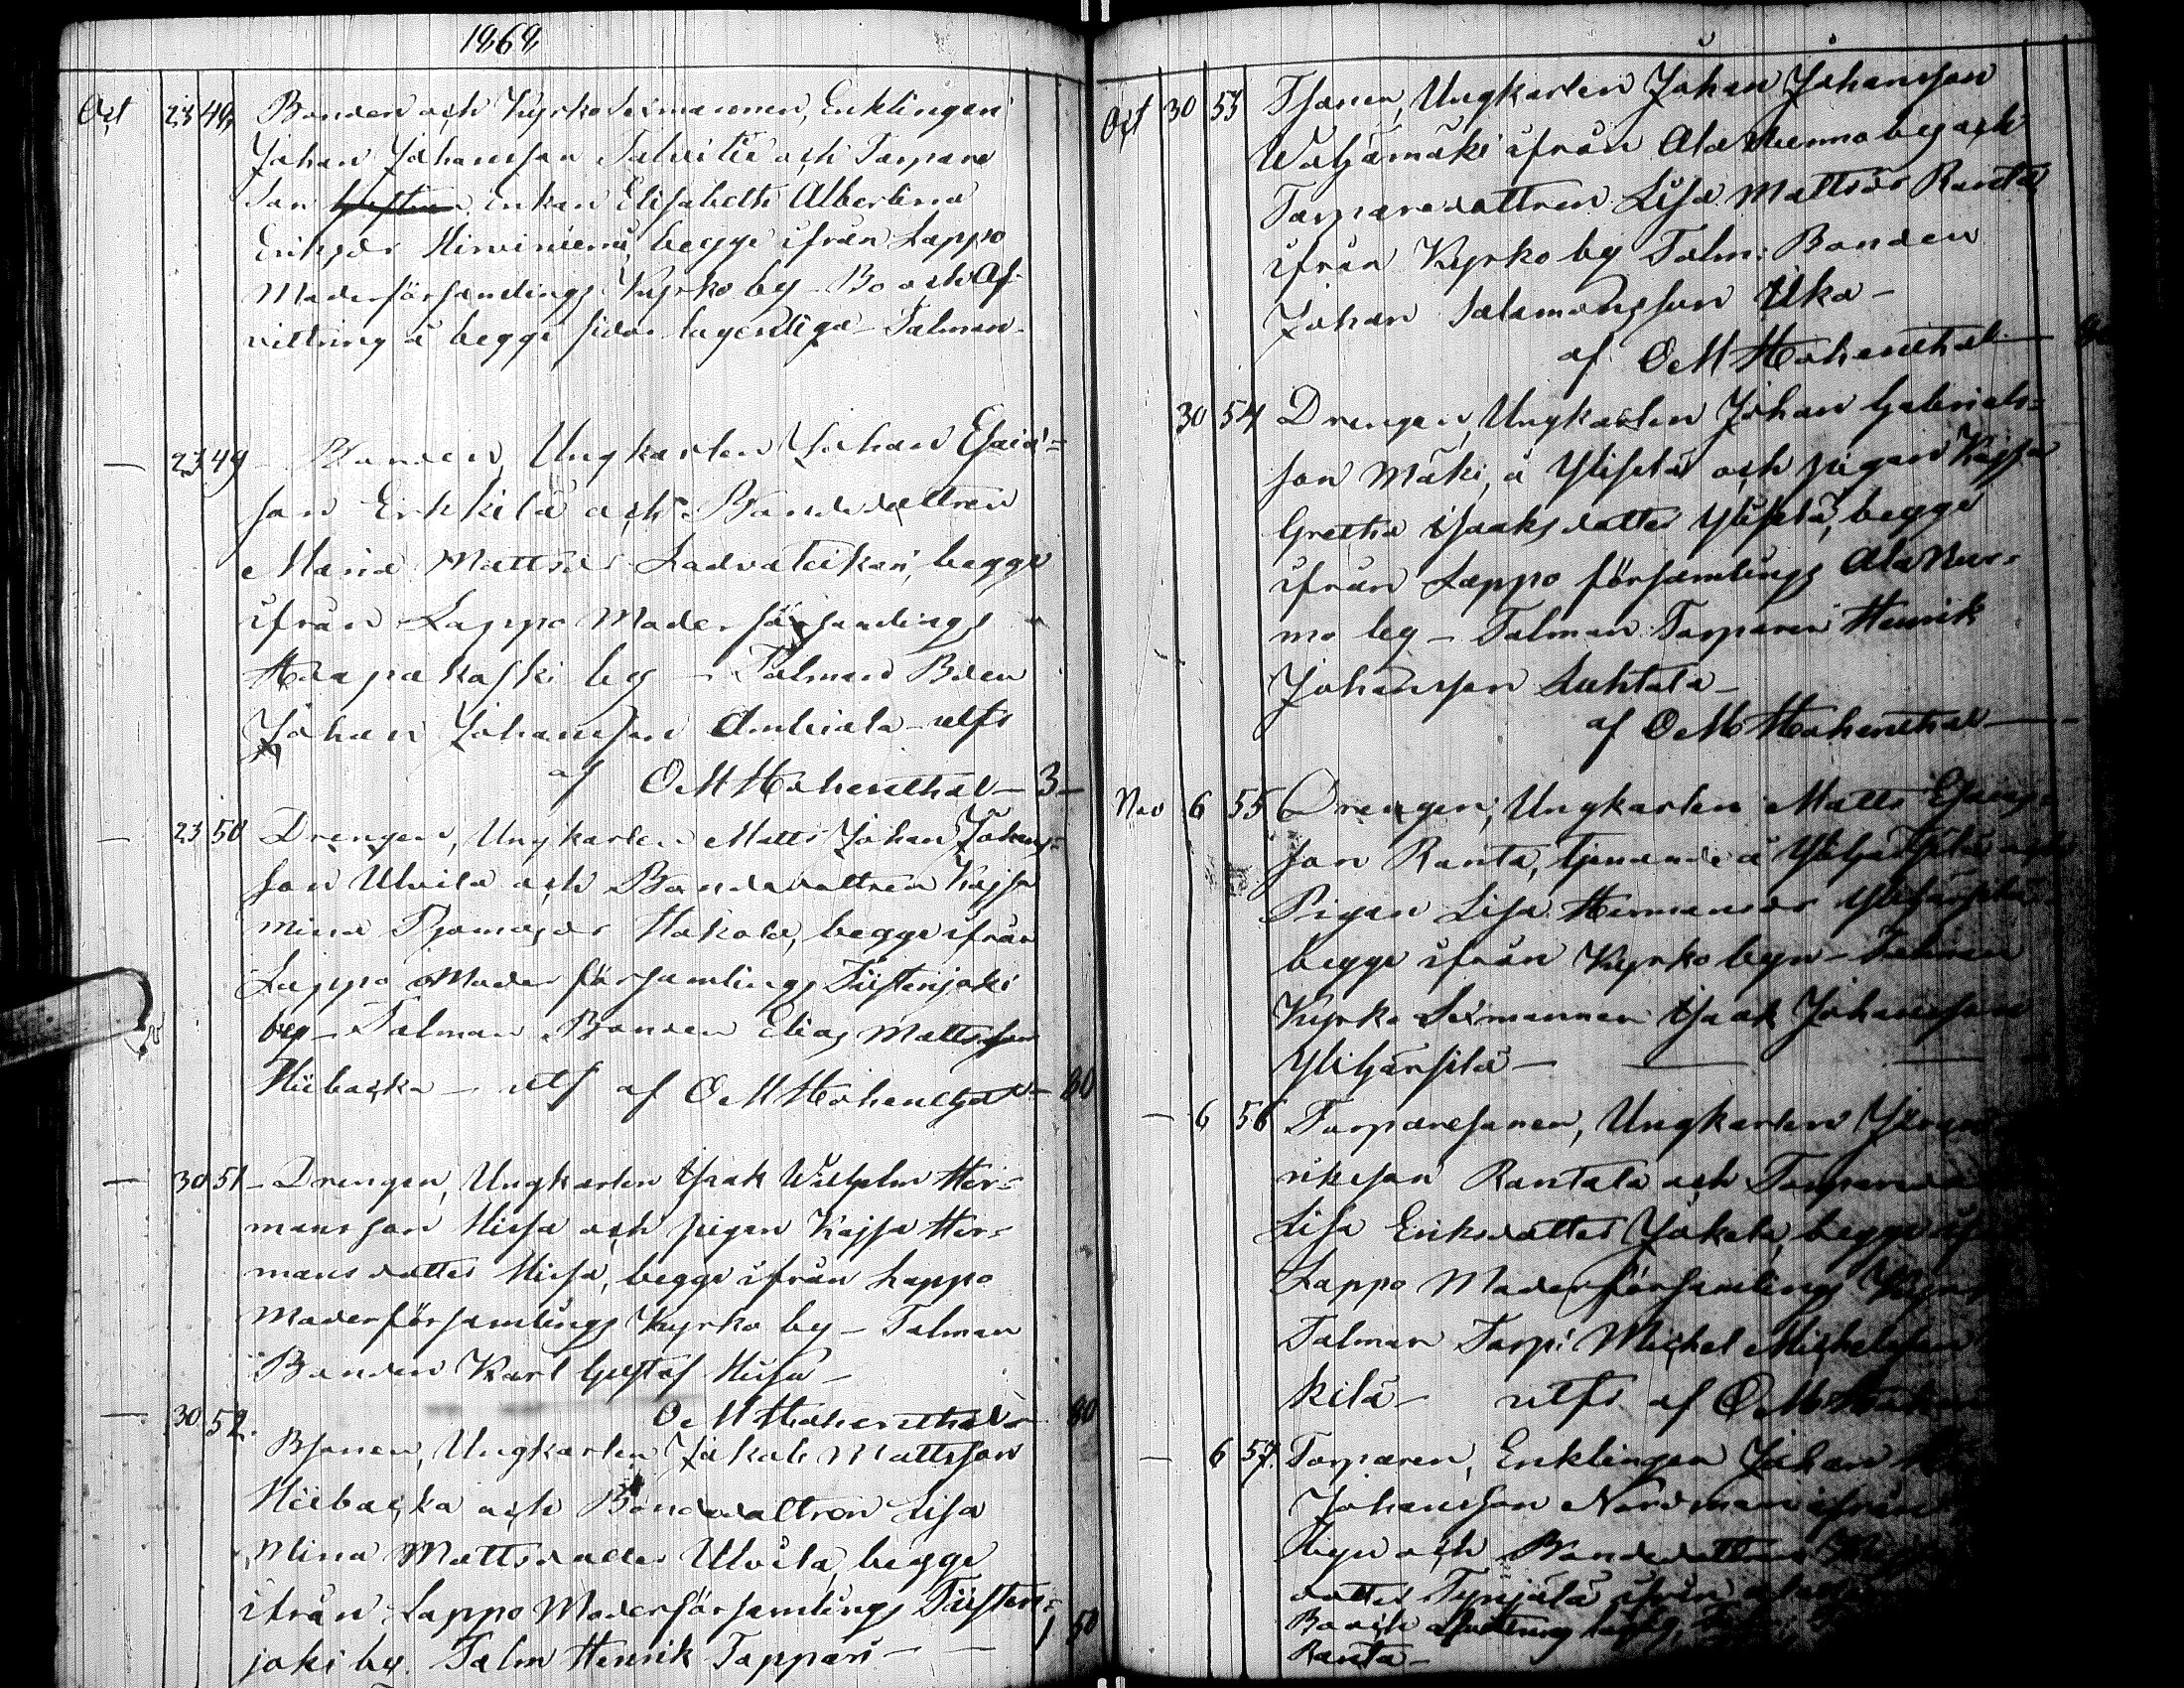 1868
Oct 23 48 Bonden och Kyrko Sexmannen, Enklingen
Johan Johansson Talvitie och Torpare
Enkan Elisabeth Albertina
Eriksdr Hirviniemi, begge ifrån Lappo
Moderförsamlings Kyrko by - Bo och Af-
vittring å begge sidor lagenliga - Talman -
— 23 49 - Bonden, Ungkarlen Johan Esaia-
son Erkkilä och Bondedottren
Maria Mattsdr Ladvateikari, begge
ifrån Lappo Moderförsamlings
Haapakoski by - Talman Bden
Johan Johansson Anttiala - utfs
af O M Hohenthal - 3 -
— 23 50 Drengen, Ungkarlen Matts Johan Johans-
son Ulvila och Bondedottren Kajsa
Mina Thomasdr Hakola, begge ifrån
Lappo Moder församlings Tiistenjoki
by - Talman Bonden Elias Mattsson
Hiibacka - utf af O M Hohenthal - 80
— 30 51 - Drengen, Ungkarlen Isak Wilhelm Her-
mansson Hissa och pigan Kajsa Her-
mansdotter Hissa, begge ifrån Lappo
Moderförsamlings Kyrko by - Talman
Bonden Karl Gustaf Hissa -
O M Hohenthal - 80
— 30 52. Bsonen, Ungkarlen Jakob Mattsson
Hiibacka och Bondedottren Lisa
Mina Mattsdotter Ulvila, begge
ifrån Lappo Moderförsamlings Tiisten-
joki by. Talm Henrik Tappari - - 1 50
Oct 30 53 Tsonen, Ungkarlen Johan Johansson
Waljamäki ifrån Ala Nurmo by och
Torparedottren Lisa Mattsdr Ranta
ifrån Kyrko by Talm: Bonden
Johan Salomonsson Uka -
af O M Hohenthal -
30 54 Drengen, Ungkarlen Johan Gabriels-
son Mäki, å Ylisetä och pigan Kajsa
Gretha Isaksdotter Ylisetä, begge
ifrån Lappo församlings Ala Nur-
mo by - Talman: Torparen Henrik
Johansson Luhtala -
af O M Hohenthal -
Nov 6 55 Drengen, Ungkarlen Matts Esaias-
son Ranta, tjenande å Ylihärsilä och
Pigan Lisa Hermansdr Ylihärsilä
begge ifrån Kyrko byn - Talman
Kyrko Sexmannen Isaak Johansson
Ylihärsilä -
— 6 56 Torparesonen, Ungkarlen
riksson Rantala och
Lisa Eriksdotter Jokela, begge
Lappo Moderförsamlings
Talman Torp: Michel Michelsson
kilä - utfs af O M
— 6 57. Torparen, Enklingen Johan
Johansson Nordman ifrån
byn och Bondedottren
dotter Tynjälä ifrån
Bo och Afvittring
Ranta -